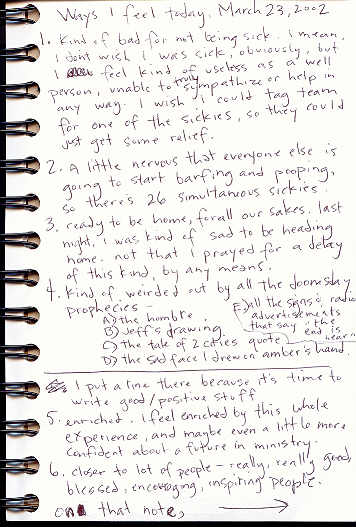 Ways I feel today, March 23, 2002
1. Kind of bad for not being sick. I mean,
I dont wish I was sick, obviously, but
I feel kind of useless as a well
person, unable to truly sympathize or help in
any way. I wish I could tag team
for one of the sickies, so they could
just get some relief.
2. A little nervous that everyone else is
going to start barfing and pooping,
so there's 26 simultaneous sickies.
3. ready to be home, for all our sakes. last
night, I was kind of sad to be heading
home. not that I prayed for a delay
of this kind, by any means.
4. Kind of weirded out by all the doomsday
prophecies -
A) the
B) Jeff's drawing
C) the tale of 2 cities quote
D) the sad face I drew on amber's hand.
E) all the signs & radio
advertisements
that say "the
end is
near"
I put a line there because it's time to
write good/positive stuff
5. enriched. I feel enriched by this whole
experience, and maybe even a little more
confident about a future in ministry.
6. closer to lot of people - really, really good,
blessed, encouraging, inspiring people.
on that note,